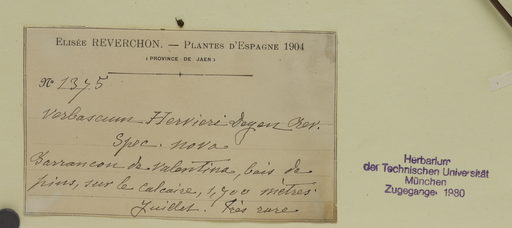 ELISÉE REVERCHON. — PLANTES D'ESPAGNE 1904
(PROVINCE DE JAEN)
No 1375
Verbascum Hervieri Degen Rev.
Spec. nova
Barrancon de Valentina, bois de
pins, sur le calcaire, 1,700 mètres.
Juillet. Très rare
Herbarium
der Technischen Universität
München
Zugegangen 1980